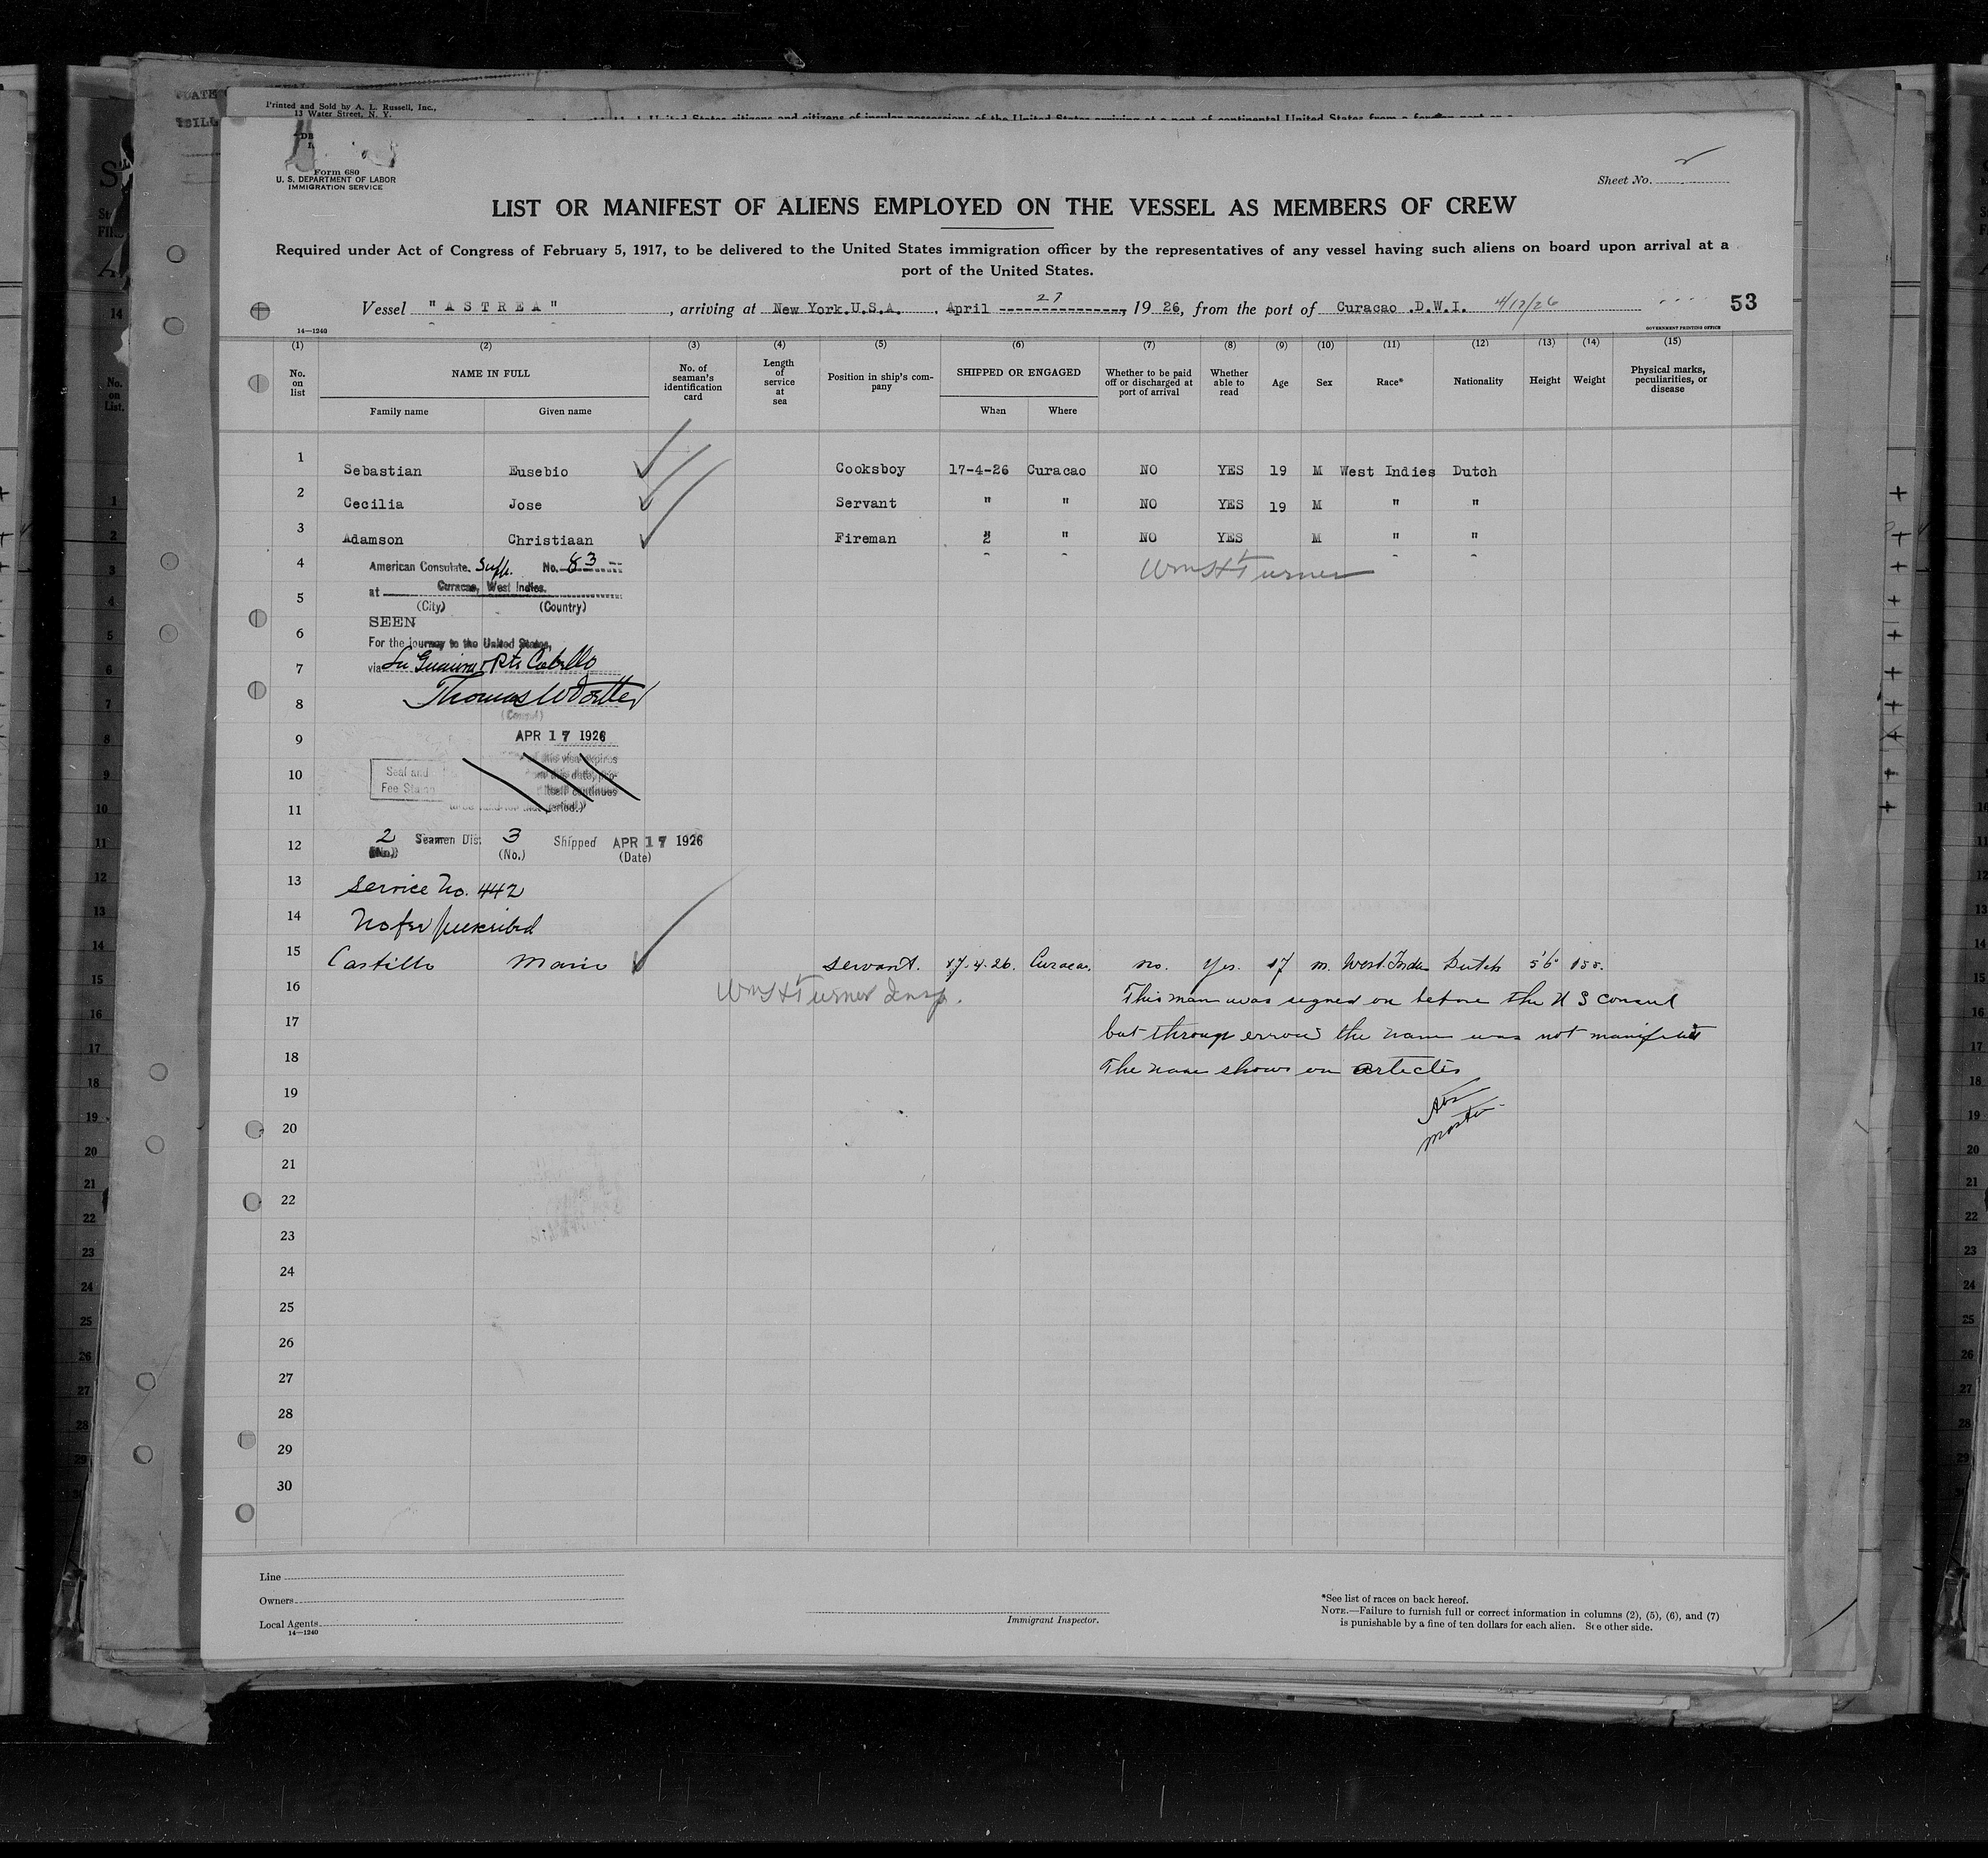 Printed and Sold by A. L. Russell, Inc.,
13 Water Street, N. Y.
Form 680
U. S. DEPARTMENT OF LABOR
IMMIGRATION SERVICE
Sheet No. 2
LIST OR MANIFEST OF ALIENS EMPLOYED ON THE VESSEL AS MEMBERS OF CREW
Required under Act of Congress of February 5, 1917, to be delivered to the United States immigration officer by the representatives of any vessel having such aliens on board upon arrival at a
port of the United States.
Vessel "ASTREA", arriving at New York.U.S.A. , April 27, 1926, from the port of Curacao .D.W.I. 4/17/26 53
14—1240
GOVERNMENT PRINTING OFFICE
(1) (2) (3) (4) (5) (6) (7) (8) (9) (10) (11) (12) (13) (14) (15)
No. on list NAME IN FULL No. of seaman's identification card Length of service at sea Position in ship's company SHIPPED OR ENGAGED Whether to be paid off or discharged at port of arrival Whether able to read Age Sex Race* Nationality Height Weight Physical marks, peculiarities, or disease
Family name Given name When Where
1 Sebastian Eusebio Cooksboy 17-4-26 Curacao NO YES 19 M West Indies Dutch
2 Cecilia Jose Servant " " NO YES 19 M " "
3 Adamson Christiaan Fireman " " NO YES M " "
4 American Consulate. Suppl. No. 83 Wm H Turner
5 at Curacao, West Indies.
(City) (Country)
6 SEEN
For the journey to the United States,
7 via La Guaira & Pto Cabello
8
(Consul)
9 APR 17 1926
10 Seal and
Fee Stamp
11
12 2 Seamen Dis. 3 Shipped APR 17 1926
(No.) (No.) (Date)
13 Service No. 442
14 No fee prescribed
15 Castillo Mario servant. 17.4.26. Curacao. no. Yes. 17 m. West.Indies Dutch 5'6" 155.
16 Wm H Turner Insp. This man was signed on before the U S Consul
17 but through error the name was not manifested
18 The name shows on articles
19
20 Master
21
22
23
24
25
26
27
28
29
30
Line
Owners
Local Agents
14—1240
Immigrant Inspector.
*See list of races on back hereof.
NOTE.—Failure to furnish full or correct information in columns (2), (5), (6), and (7)
is punishable by a fine of ten dollars for each alien. See other side.